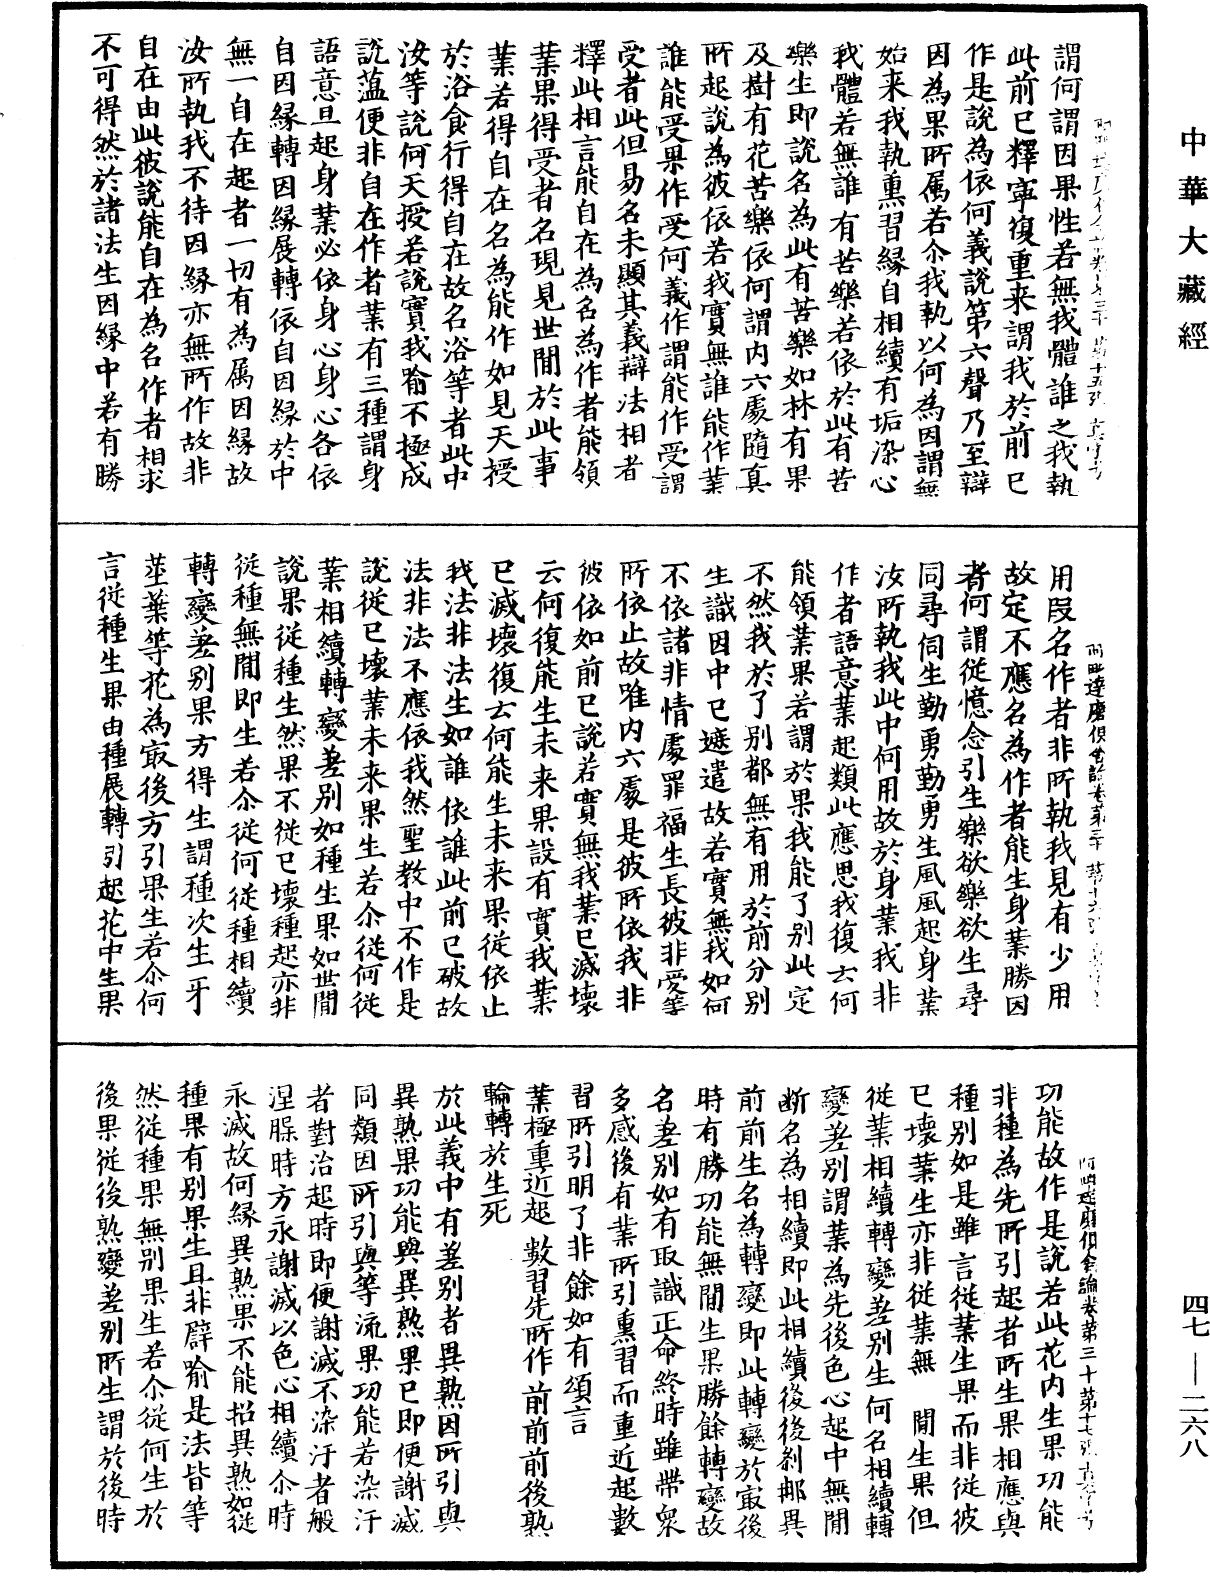 中華大藏經
謂何謂因果性若無我體誰之我執
此前已釋寧復重来謂我於前已
作是說為依何義說第六聲乃至辯
因為果所属若尒我執以何為因謂無
始来我執熏習緣自相續有垢染心
我體若無誰有苦樂若依於此有苦
樂生即說名為此有苦樂如林有果
及樹有花苦樂依何謂内六處隨真
所起說為彼依若我實無誰能作業
誰能受果作受何義作謂能作受謂
受者此但易名未顯其義辯法相者
釋此相言能自在為名為作者能領
業果得受者名現見世間於此事
業若得自在名為能作如見天授
於浴食行得自在故名浴等者此中
汝等說何天授若說實我喻不極成
說蕰便非自在作者業有三種謂身
語意旦起身業必依身心身心各依
自因緣轉因緣展轉依自因緣於中
無一自在起者一切有為属因緣故
汝所執我不待因緣亦無所作故非
自在由此彼說能自在為名作者相求
不可得然於諸法生因緣中若有勝
用叚名作者非所執我見有少用
故定不應名為作者能生身業勝因
者何謂從憶念引生樂欲樂欲生尋
同尋伺生勤勇勤勇生風風起身業
汝所執我此中何用故於身業我非
作者語意業起類此應思我復去何
能領業果若謂於果我能了别此定
不然我於了别都無有用於前分别
生識因中已遮遣故若實無我如何
不依諸非情處罪福生長彼非受等
所依止故唯内六處是彼所依我非
彼依如前已說若實無我業已滅壞
云何復能生未来果設有實我業
已滅壞復去何能生未来果從依止
我法非法生如誰依誰此前已破故
法非法不應依我然聖教中不作是
說從已壞業未来果生若尒從何從
業相續轉變差别如種生果如世間
說果從種生然果不從已壞種起亦非
從種無間即生若尒從何從種相續
轉變差别果方得生謂種次生牙
莖葉等花為㝡後方引果生若尒何
言從種生果由種展轉引起花中生果
阿毗達磨俱舍論卷第三十第十七張
功能故作是說若此花内生果功能
非種為先所引起者所生果相應與
種别如是雖言從業生果而非從彼
已壞業生亦非從業無間生果但
從業相續轉變差别生何名相續轉
變差别謂業為先後色心起中無間
断名為相續即此相續後後刹那異
前前生名為轉變即此轉變於㝡後
時有勝功能無間生果勝餘轉變故
名差别如有取識正命終時雖帶眾
多感後有業所引熏習而重近起數
習所引明了非餘如有頌言
業極重近起 數習先所作前前前後熟
輪轉於生死
於此義中有差别者異熟因所引與
異熟果功能與異熟果已即便謝滅
同類因所引與等流果功能若染汙
者對治起時即便謝滅不染汙者般
涅槃時方永謝滅以色心相續尒時
永滅故何緣異熟果不能招異熟如從
種果有别果生且非譬喻是法皆等
然從種果無别果生若尒從何生於
後果從後熟變差别所生謂於後時
四七—二六八